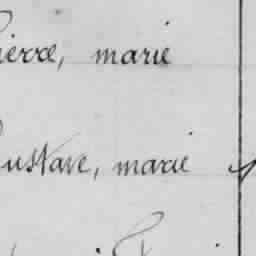 ierre, marie
ustave, marie